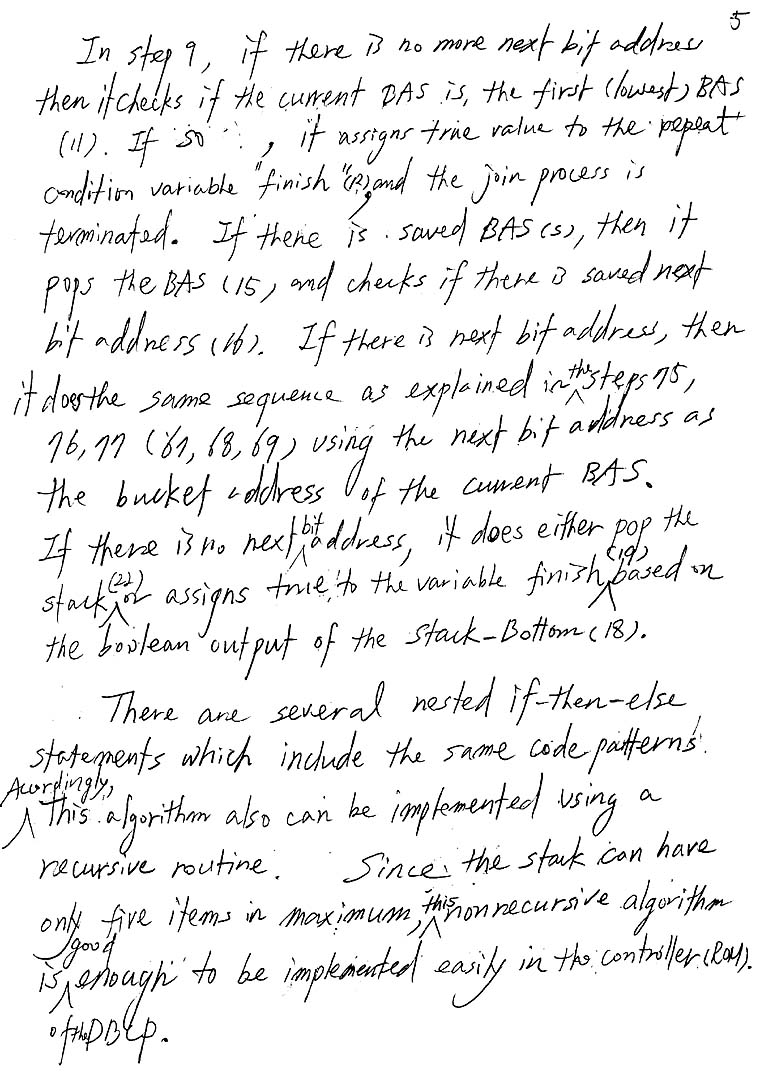 5
In step 9, if there is no more next bit address
then it checks if the current BAS is, the first (lowest) BAS
(11). If so, it assigns true value to the repeat
condition variable "finish" (12), and the join process is
terminated. If there is saved BAS(s), then it
pops the BAS (15) and checks if there is saved next
bit address (16). If there is next bit address, then
it does the same sequence as explained in the steps 75,
76, 77 (67, 68, 69) using the next bit address as
the bucket address of the current BAS.
If there is no next bit address, it does either pop the
stack (22) or assigns true to the variable finish (19) based on
the boolean output of the Stack-Bottom (18).
There are several nested if-then-else
statements which include the same code patterns.
Acordingly, This algorithm also can be implemented using a
recursive routine. Since the stack can have
only five items in maximum, this nonrecursive algorithm
is good enough to be implemented easily in the controller (ROM).
of the DBCP.